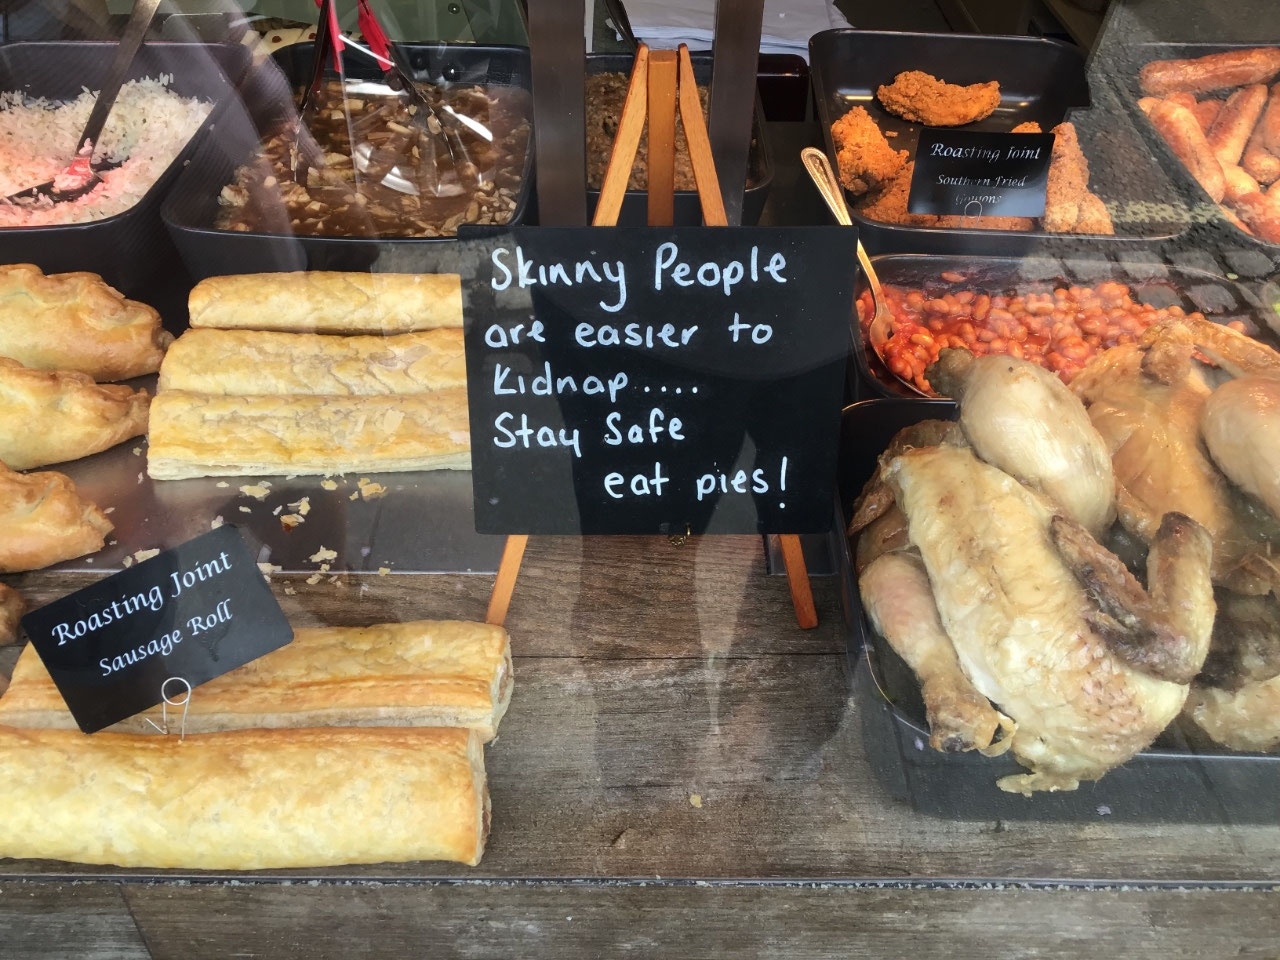 Roasting Joint
Southern Fried
Skinny People
are easier to
Kidnap....
Stay Safe
eat pies!
Roasting Joint
Sausage Roll